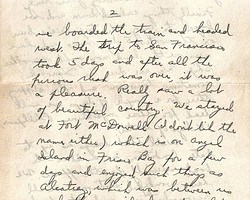 2
we boarded the train and headed
west. The trip to San Francisco
took 5 days and after all the
previous shad was over, it was
a pleasure. Really saw a lot
of beautiful country. We stayed
at Fort McDowell (I don't like the
name either) which is on angel
island in Frisco Bay for a few
days and enjoyed such things as
Alcatraz, which was between us